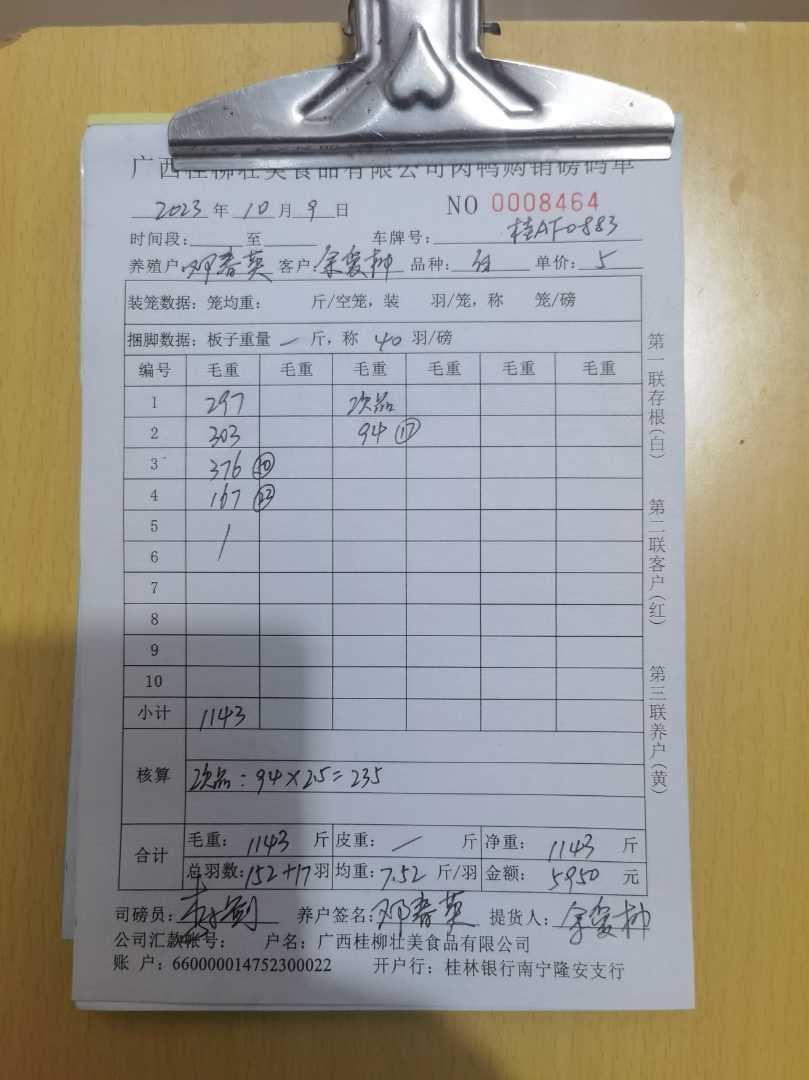 广西桂柳壮美食品有限公司肉鸭购销磅码单
2023 年 10 月 9 日 NO 0008464
时间段: 至 车牌号: 桂AF0883
养殖户: 邓春英 客户: 余爱柳 品种: 白 单价: 5
装笼数据: 笼均重: 斤/空笼, 装 羽/笼, 称 笼/磅
捆脚数据: 板子重量 一 斤, 称 40 羽/磅
编号 毛重 毛重 毛重 毛重 毛重 毛重
1 297 次品
2 303 94 ⑰
3 376 ㊿
4 167 ㉒
5
6
7
8
9
10
小计 1143
核算 次品: 94×2.5=235
合计 毛重: 1143 斤 皮重: 一 斤 净重: 1143 斤
总羽数: 152+17 羽 均重: 7.52 斤/羽 金额: 5950 元
司磅员: 养户签名: 邓春英 提货人: 余爱柳
公司汇款帐号: 户名: 广西桂柳壮美食品有限公司
账 户: 660000014752300022 开户行: 桂林银行南宁隆安支行
第一联存根(白) 第二联客户(红) 第三联养户(黄)